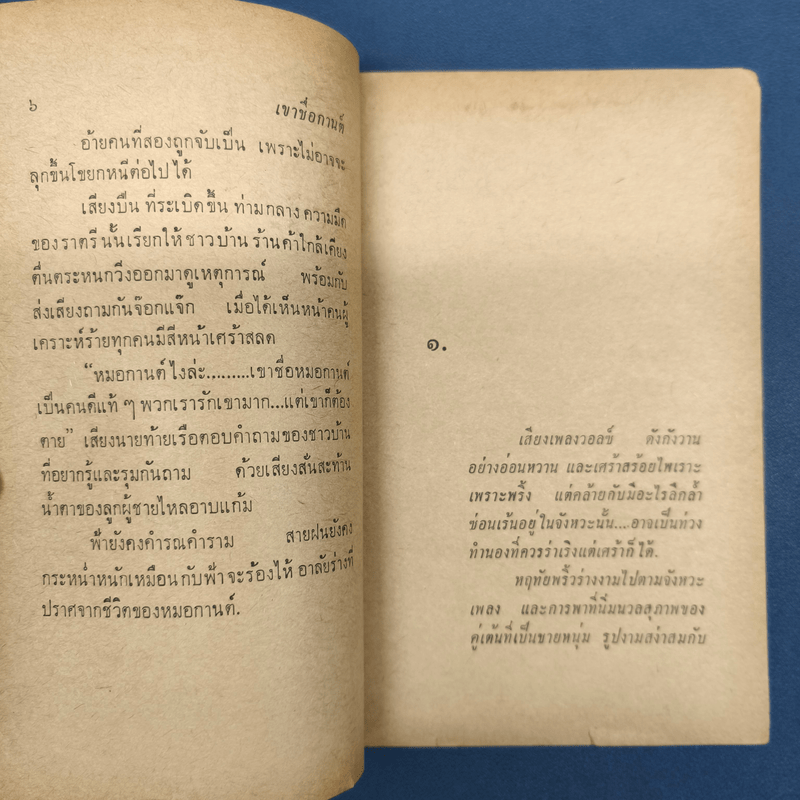 ๖
เขาชื่อกานต์
อ้ายคนที่สองถูกจับเป็น เพราะไม่อาจจะ
ลุกขึ้นโขยกหนีต่อไปได้
เสียงปืน ที่ระเบิดขึ้น ท่ามกลาง ความมืด
ของราตรีนั้นเรียกให้ชาวบ้าน ร้านค้าใกล้เคียง
ตื่นตระหนกวิ่งออกมาดูเหตุการณ์ พร้อมกับ
ส่งเสียงถามกันจ๊อกแจ๊ก เมื่อได้เห็นหน้าคนผู้
เคราะห์ร้ายทุกคนมีสีหน้าเศร้าสลด
“หมอกานต์ไงล่ะ.........เขาชื่อหมอกานต์
เป็นคนดีแท้ ๆ พวกเรารักเขามาก...แต่เขาก็ต้อง
ตาย” เสียงนายท้ายเรือตอบคำถามของชาวบ้าน
ที่อยากรู้และรุมกันถาม ด้วยเสียงสั่นสะท้าน
น้ำตาของลูกผู้ชายไหลอาบแก้ม
ฟ้ายังคงคำรณคำราม สายฝนยังคง
กระหน่ำหนักเหมือนกับฟ้าจะร้องไห้ อาลัยร่างที่
ปราศจากชีวิตของหมอกานต์.
๑.
เสียงเพลงวอลซ์ ดังกังวาน
อย่างอ่อนหวาน และเศร้าสร้อยไพเราะ
เพราะพริ้ง แต่คล้ายกับมีอะไรลึกล้ำ
ซ่อนเร้นอยู่ในจังหวะนั้น....อาจเป็นท่วง
ทำนองที่ควรร่าเริงแต่เศร้าก็ได้.
หฤทัยพริ้วร่างงามไปตามจังหวะ
เพลง และการพาที่นิ่มนวลสุภาพของ
คู่เต้นที่เป็นชายหนุ่ม รูปงามสง่าสมกับ